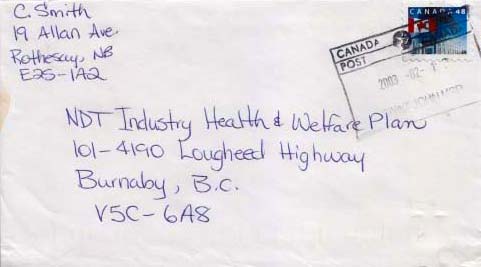 C. Smith
19 Allan Ave
Rothesay, NB
E2S-1A2
CANADA 48
CANADA
POST
2003-02-
NDT Industry Health & Welfare Plan
101-4190 Lougheed Highway
Burnaby, B.C.
V5C-6A8